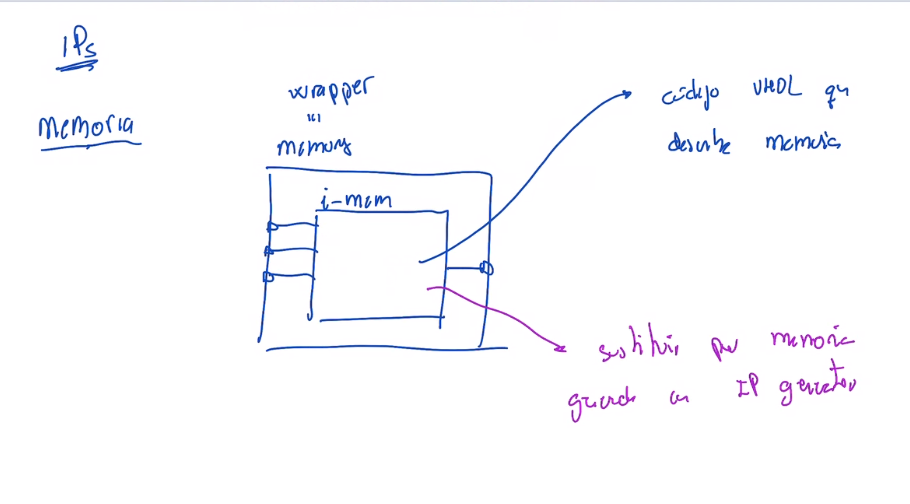 IPs
Memoria
wrapper
memory
i-mem
código VHDL que
describe memoria
sustituir por memoria
en IP generator